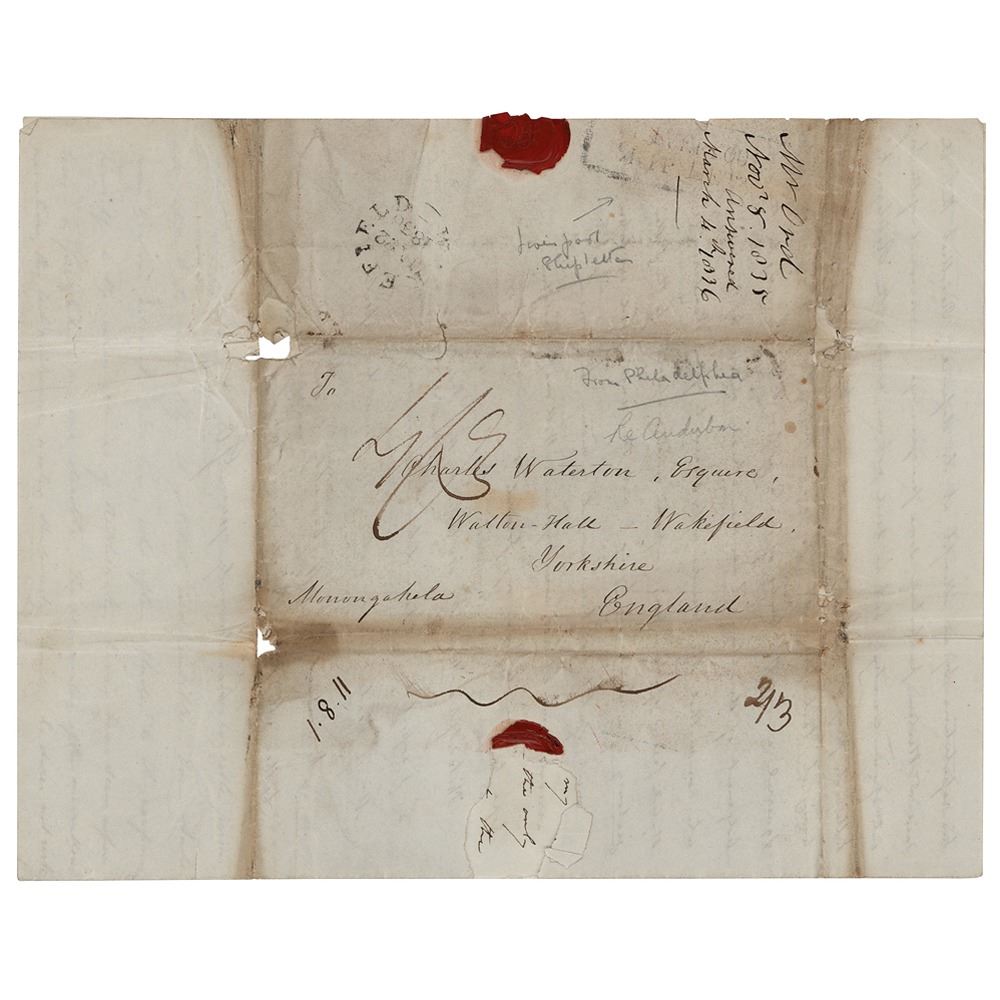 Mr Ord
Novr 8. 1835
Answered
March 4. 1836
Liverpool
Ship letter
To
From Philadelphia
Re Audubon
Charles Waterton, Esquire,
Walton-Hall – Wakefield,
Yorkshire
Monongahela England
1.8.11
2/3
my
the only
the